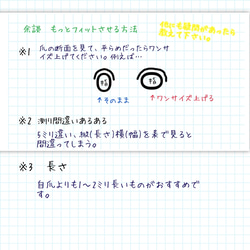 余談 もっとフィットさせる方法
何でも質問があったら
教えて下さい。
※1 爪の断面を見て、平らめだったらワンサ
イズ上げてください。例えば…
幅 幅
↑そのまま ↑ワンサイズ上げる
※2 測り間違いあるある
5ミリ違い、縦(長さ)横(幅)を表で見ると
間違ってしまう。
※3 長さ
自爪よりも1〜2ミリ長いものがおすすめで
す。